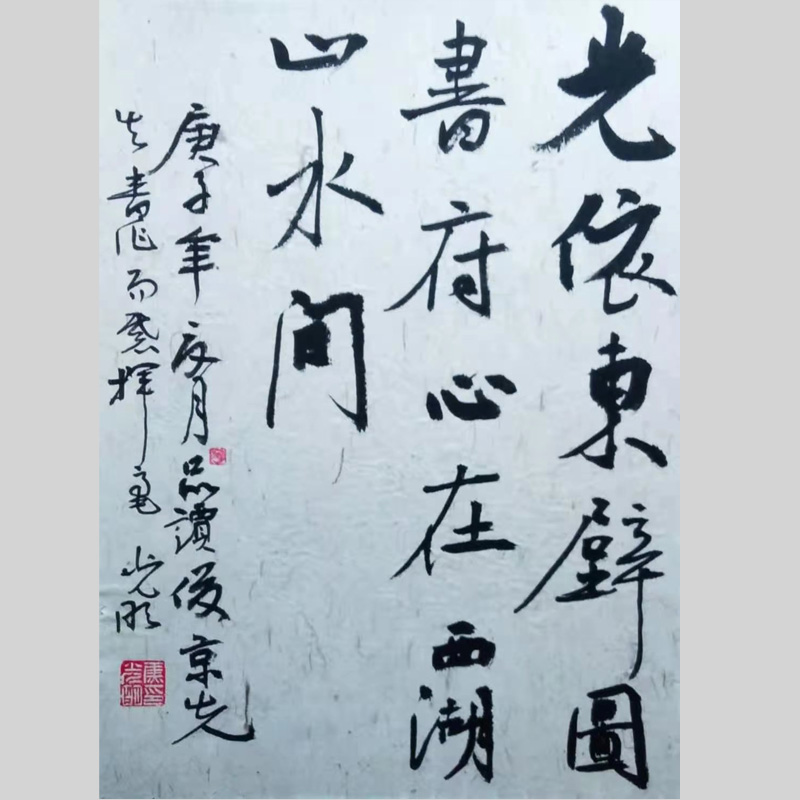 光依東壁圖
書府心在西湖
山水間
庚子年夏月品讀俊京先
生書作而感揮毫 光明